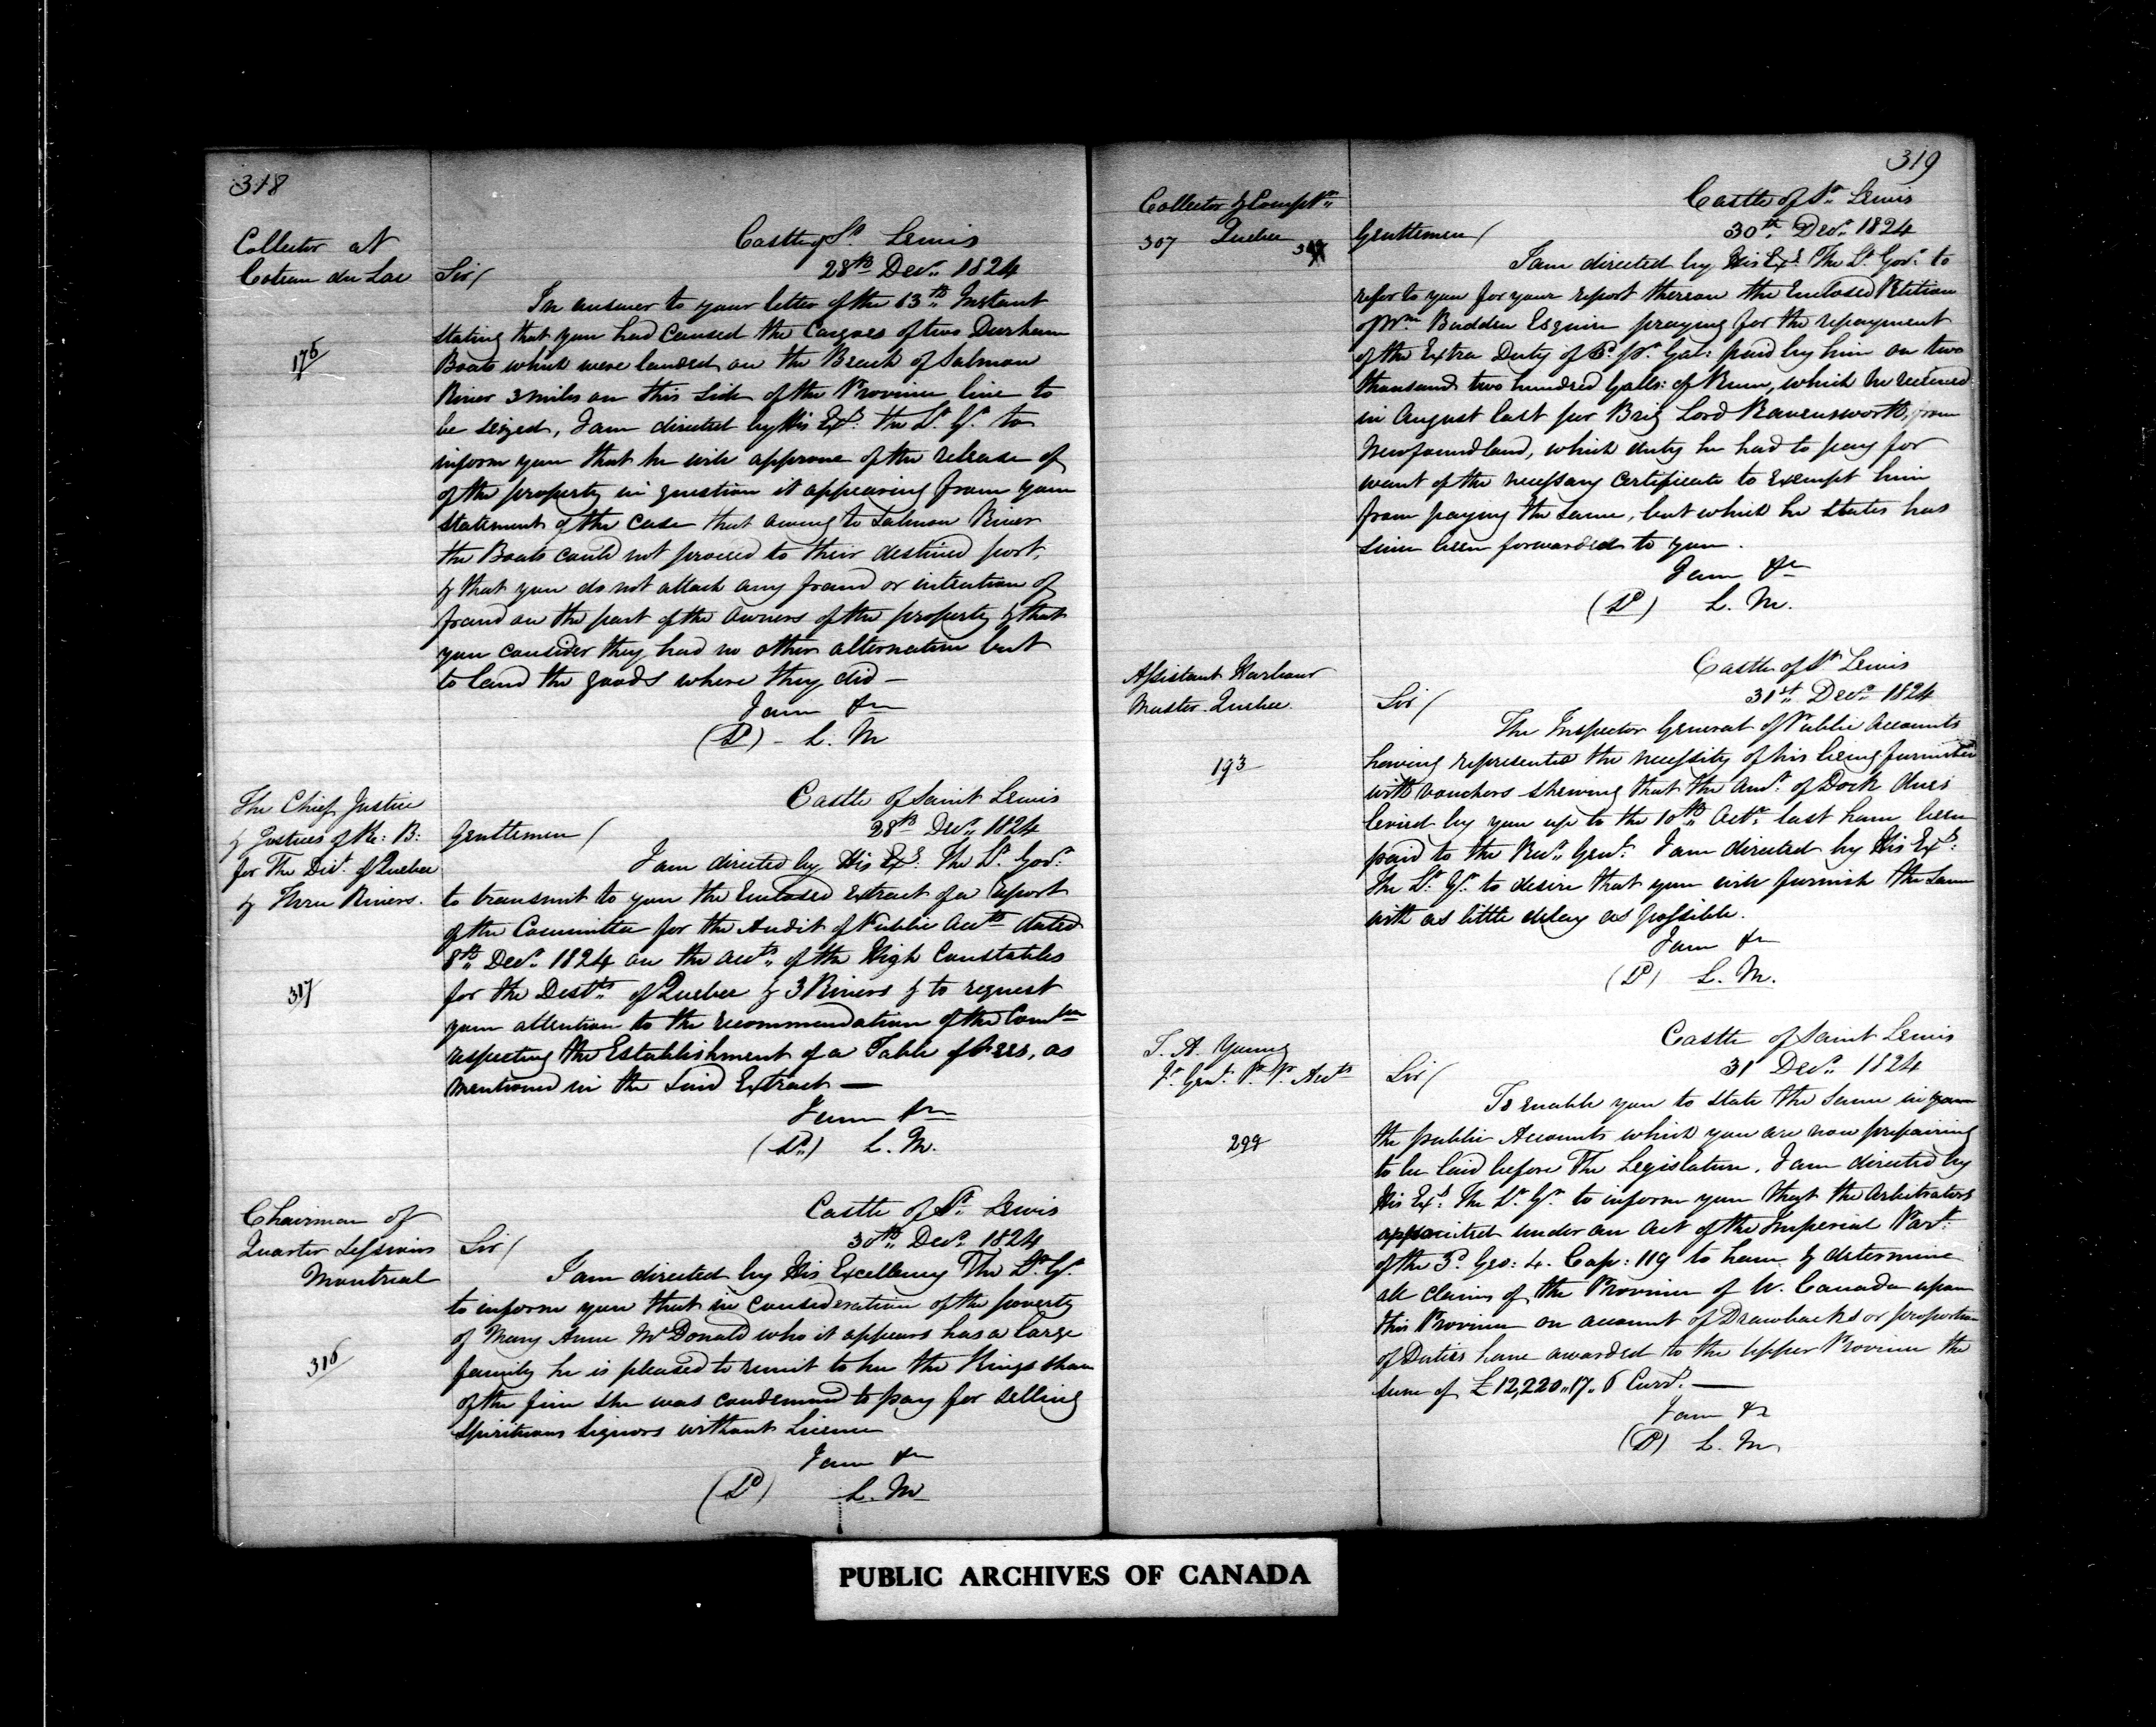 318
Collector at
Coteau du Lac
176
Castle of St. Lewis
28th Decr. 1824
Sir/
In answer to your letter of the 13th Instant
stating that you had caused the Cargoes of two Durham
Boats which were landed on the Beach of Salmon
River 3 miles on this side of the Province line to
be seized, I am directed by His Exy. the Lt. Gr. to
inform you that he will approve of the release of
of the property in question it appearing from your
statement of the case that owing to Salmon River
the Boats could not proceed to their destined port,
& that you do not attach any fraud or intention of
fraud on the part of the owners of the property & that
you consider they had no other alternative but
to land the goods where they did —
I am &c
(Sd) - L. M
The Chief Justice
& Justices of K: B:
for The Dist. of Quebec
& Three Rivers.
317
Castle of Saint Lewis
28th Decr. 1824
Gentlemen/
I am directed by His Exy. The Lt. Govr.
to transmit to you the Enclosed Extract of a report
of the Committee for the Audit of Public Accts dated
8th Decr. 1824 on the accts. of the High Constables
for the Distts. of Quebec & 3 Rivers & to request
your attention to the recommendation of the Comtee
respecting the Establishment of a Table of Fees, as
mentioned in the said Extract —
I am &c
(Sd.) L. M.
Chairman of
Quarter Sessions
Montreal
316
Castle of St. Lewis
30th Decr. 1824
Sir/
I am directed by His Excellency The Lt. Gr.
to inform you that in consideration of the poverty
of Mary Anne McDonald who it appears has a large
family he is pleased to remit to her the Kings share
of the fine she was condemned to pay for selling
Spirituous Liquors without Licence
I am &c
(Sd) L. M
319
Collector & Comptr.
307 Quebec
Castle of St. Lewis
30th. Decr. 1824
Gentlemen/
I am directed by His Exy. The Lt. Govr. to
refer to you for your report thereon the Enclosed Petition
of Wm Budden Esquire praying for the repayment
of the Extra Duty of 6d. pr. Gal: paid by him on two
thousand two hundred Galls: of Rum, which he received
in August last per Brig Lord Ravensworth, from
Newfoundland, which duty he had to pay for
want of the necessary Certificate to Exempt him
from paying the same, but which he states has
since been forwarded to you.
I am &c
(Sd) L. M.
Assistant Harbour
Master Quebec
193
Castle of St. Lewis
31st. Decr. 1824
Sir/
The Inspector General of Public Accounts
having represented the necessity of his being furnished
with vouchers shewing that the Amt. of Dock dues
levied by you up to the 10th Octr. last have been
paid to the Recr. Genl. I am directed by His Exy.
The Lt. Gr. to desire that you will furnish the same
with as little delay as possible.
I am &c
(Sd) L. M.
T. A. Young
Ir. Genl. P. P. Accts
299
Castle of Saint Lewis
31 Decr. 1824
Sir/
To enable you to state the same in your
the public Accounts which you are now prepairing
to be laid before The Legislature, I am directed by
His Exy. The Lt. Gr. to inform you that the Arbitrators
appointed under an Act of the Imperial Part.
of the 3d. Geo: 4. Cap: 119 to hear & determine
all claims of the Province of U. Canada upon
this Province on account of Drawbacks or proportion
of Duties have awarded to the Upper Province the
sum of £12,220..17..6 Curry. —
I am &c
(Sd) L. M
PUBLIC ARCHIVES OF CANADA